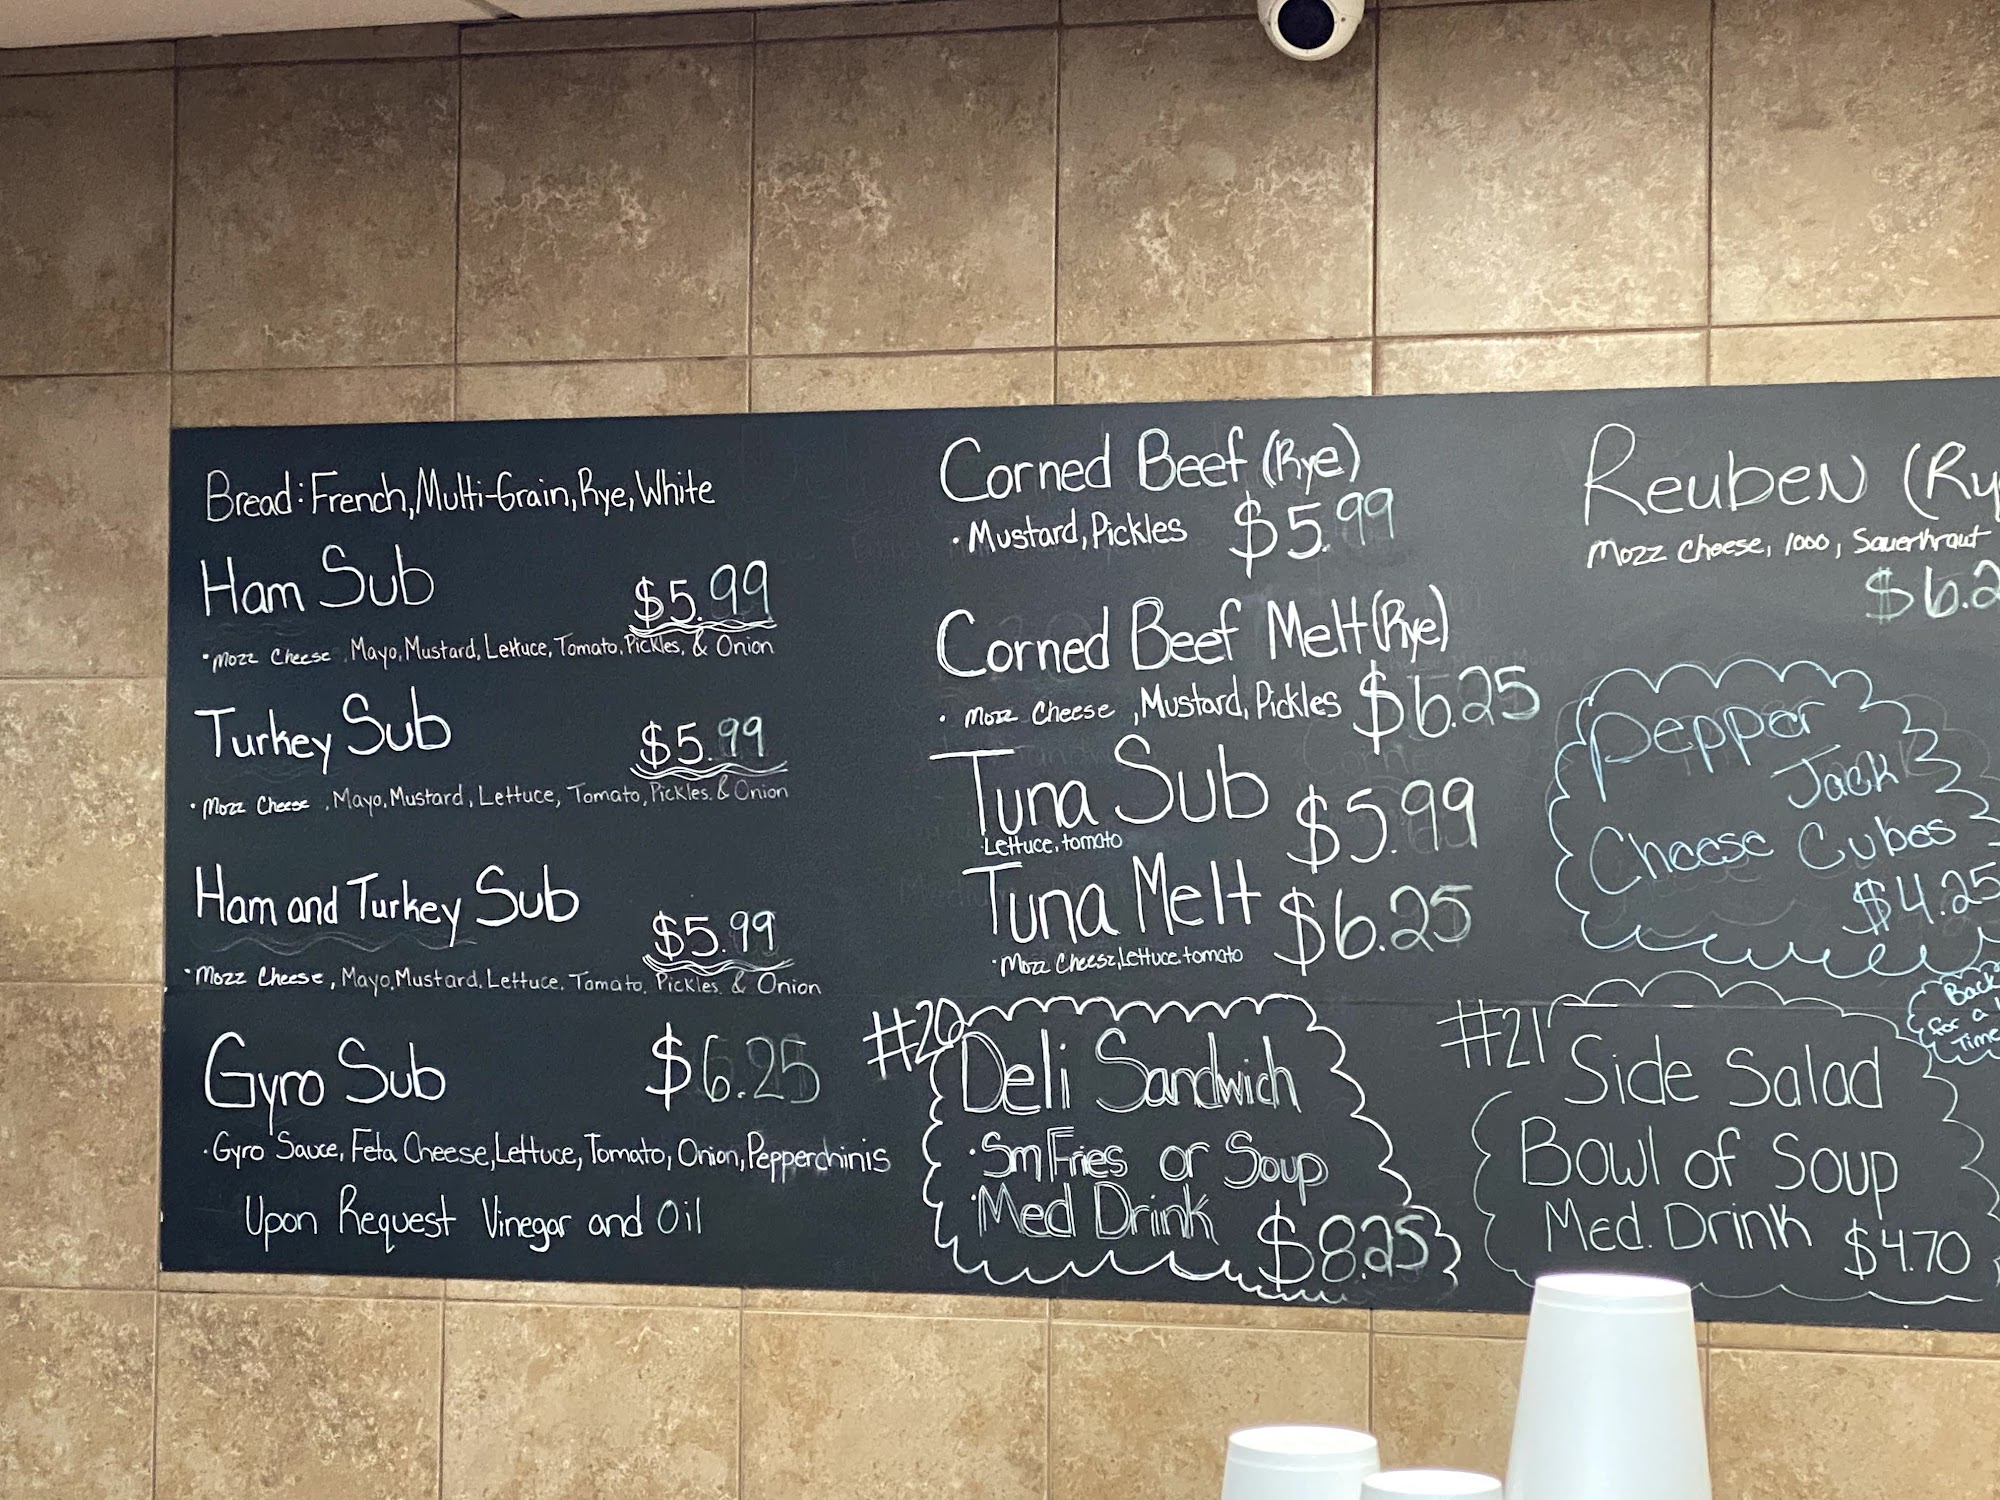 Bread: French, Multi-Grain, Rye, White
Ham Sub
$5.99
• Mozz Cheese, Mayo, Mustard, Lettuce, Tomato, Pickles, & Onion
Turkey Sub
$5.99
• Mozz Cheese, Mayo, Mustard, Lettuce, Tomato, Pickles & Onion
Ham and Turkey Sub
$5.99
• Mozz Cheese, Mayo, Mustard, Lettuce, Tomato, Pickles & Onion
Gyro Sub $6.25
• Gyro Sauce, Feta Cheese, Lettuce, Tomato, Onion, Pepperchinis
Upon Request Vinegar and Oil
Corned Beef (Rye)
• Mustard, Pickles $5.99
Corned Beef Melt (Rye)
• Mozz Cheese, Mustard, Pickles $6.25
Tuna Sub $5.99
Lettuce, tomato
Tuna Melt $6.25
• Mozz Cheese, Lettuce, tomato
#20
Deli Sandwich
• Sm Fries or Soup
• Med Drink $8.25
Reuben (Ry
Mozz Cheese, 1000, Sauerkraut
$6.2
Pepper
Jack
Cheese Cubes
$4.25
Back
for a
Time
#21
Side Salad
Bowl of Soup
Med. Drink $4.70